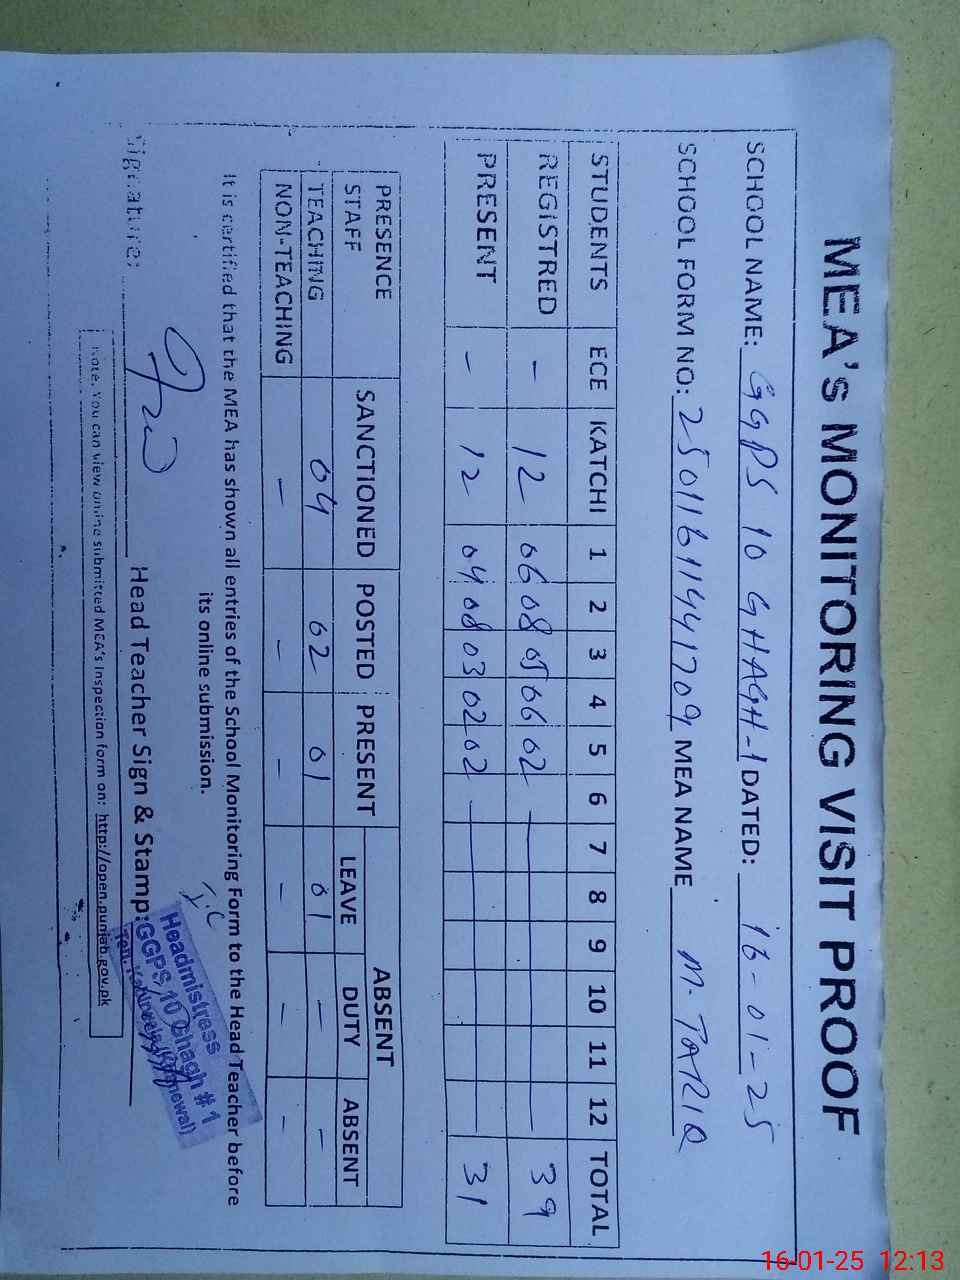 MEA's MONITORING VISIT PROOF
SCHOOL NAME: GGPS 10 GHAGH-1 DATED: 16-01-25
SCHOOL FORM NO: 25011611441709 MEA NAME M. TARIQ
STUDENTS ECE KATCHI 1 2 3 4 5 6 7 8 9 10 11 12 TOTAL
REGISTRED - 12 06 08 05 06 02 39
PRESENT - 12 04 08 03 02 02 31
PRESENCE STAFF SANCTIONED POSTED PRESENT ABSENT
LEAVE DUTY ABSENT
TEACHING 04 02 01 01 - -
NON-TEACHING - - - - - -
It is certified that the MEA has shown all entries of the School Monitoring Form to the Head Teacher before
its online submission.
Signature: Head Teacher Sign & Stamp:
I/C
Headmistress
GGPS, 10 Ghagh # 1
Note. You can view online submitted MEA's Inspection form on: http://open.punjab.gov.pk
16-01-25 12:13